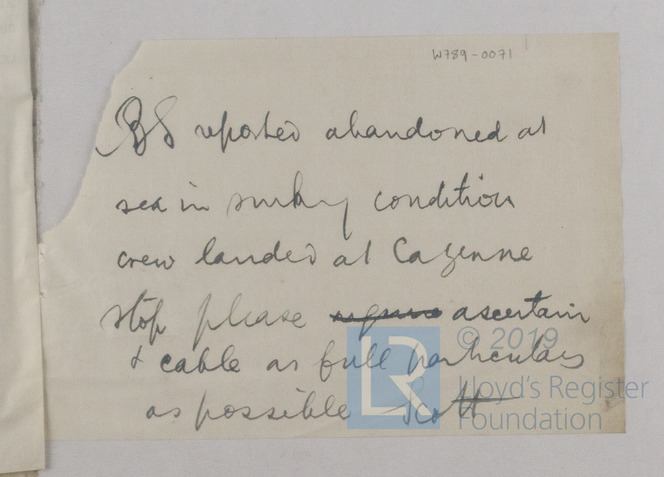 W789-0071
BS reported abandoned at
sea in sinking condition
crew landed at Cayenne
stop please ascertain
& cable as full particulars
as possible Scott
© 2019
LR
Lloyd's Register
Foundation